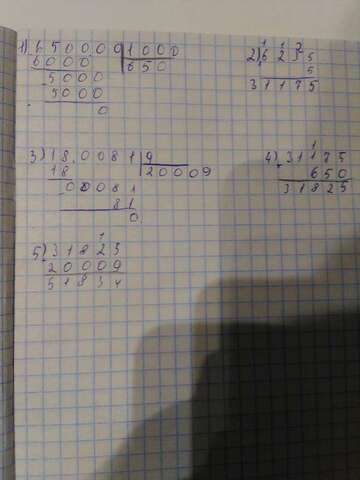 1) 650000 | 1000
6000 | 650
5000
5000
0
1 1 2
2) 6235
5
31175
3) 180081 | 9
18 | 20009
0081
81
0
1
4) 31175
650
31825
1
5) 31825
20009
51834